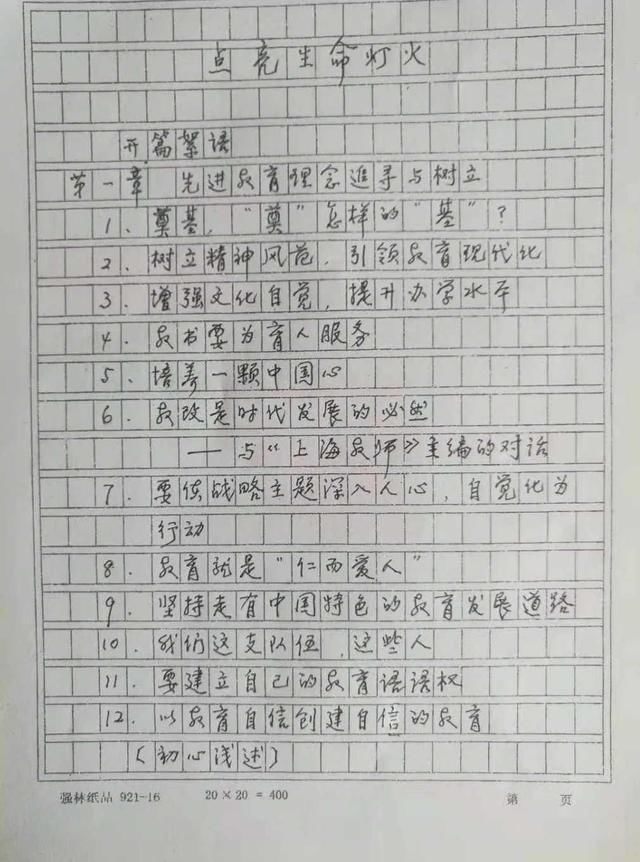 点亮生命灯火
开篇絮语
第一章 先进教育理念追寻与树立
1. 奠基，“奠”怎样的“基”？
2. 树立精神风范，引领教育现代化
3. 增强文化自觉，提升办学水平
4. 教书要为育人服务
5. 培养一颗中国心
6. 教改是时代发展的必然
——与《上海教师》主编的对话
7. 要使战略主题深入人心，自觉化为
行动
8. 教育就是“仁而爱人”
9. 坚持走有中国特色的教育发展道路
10. 我们这支队伍，这些人
11. 要建立自己的教育话语权
12. 以教育自信创建自信的教育
（初心浅述）
强林纸品 921-16 20×20=400 第 页